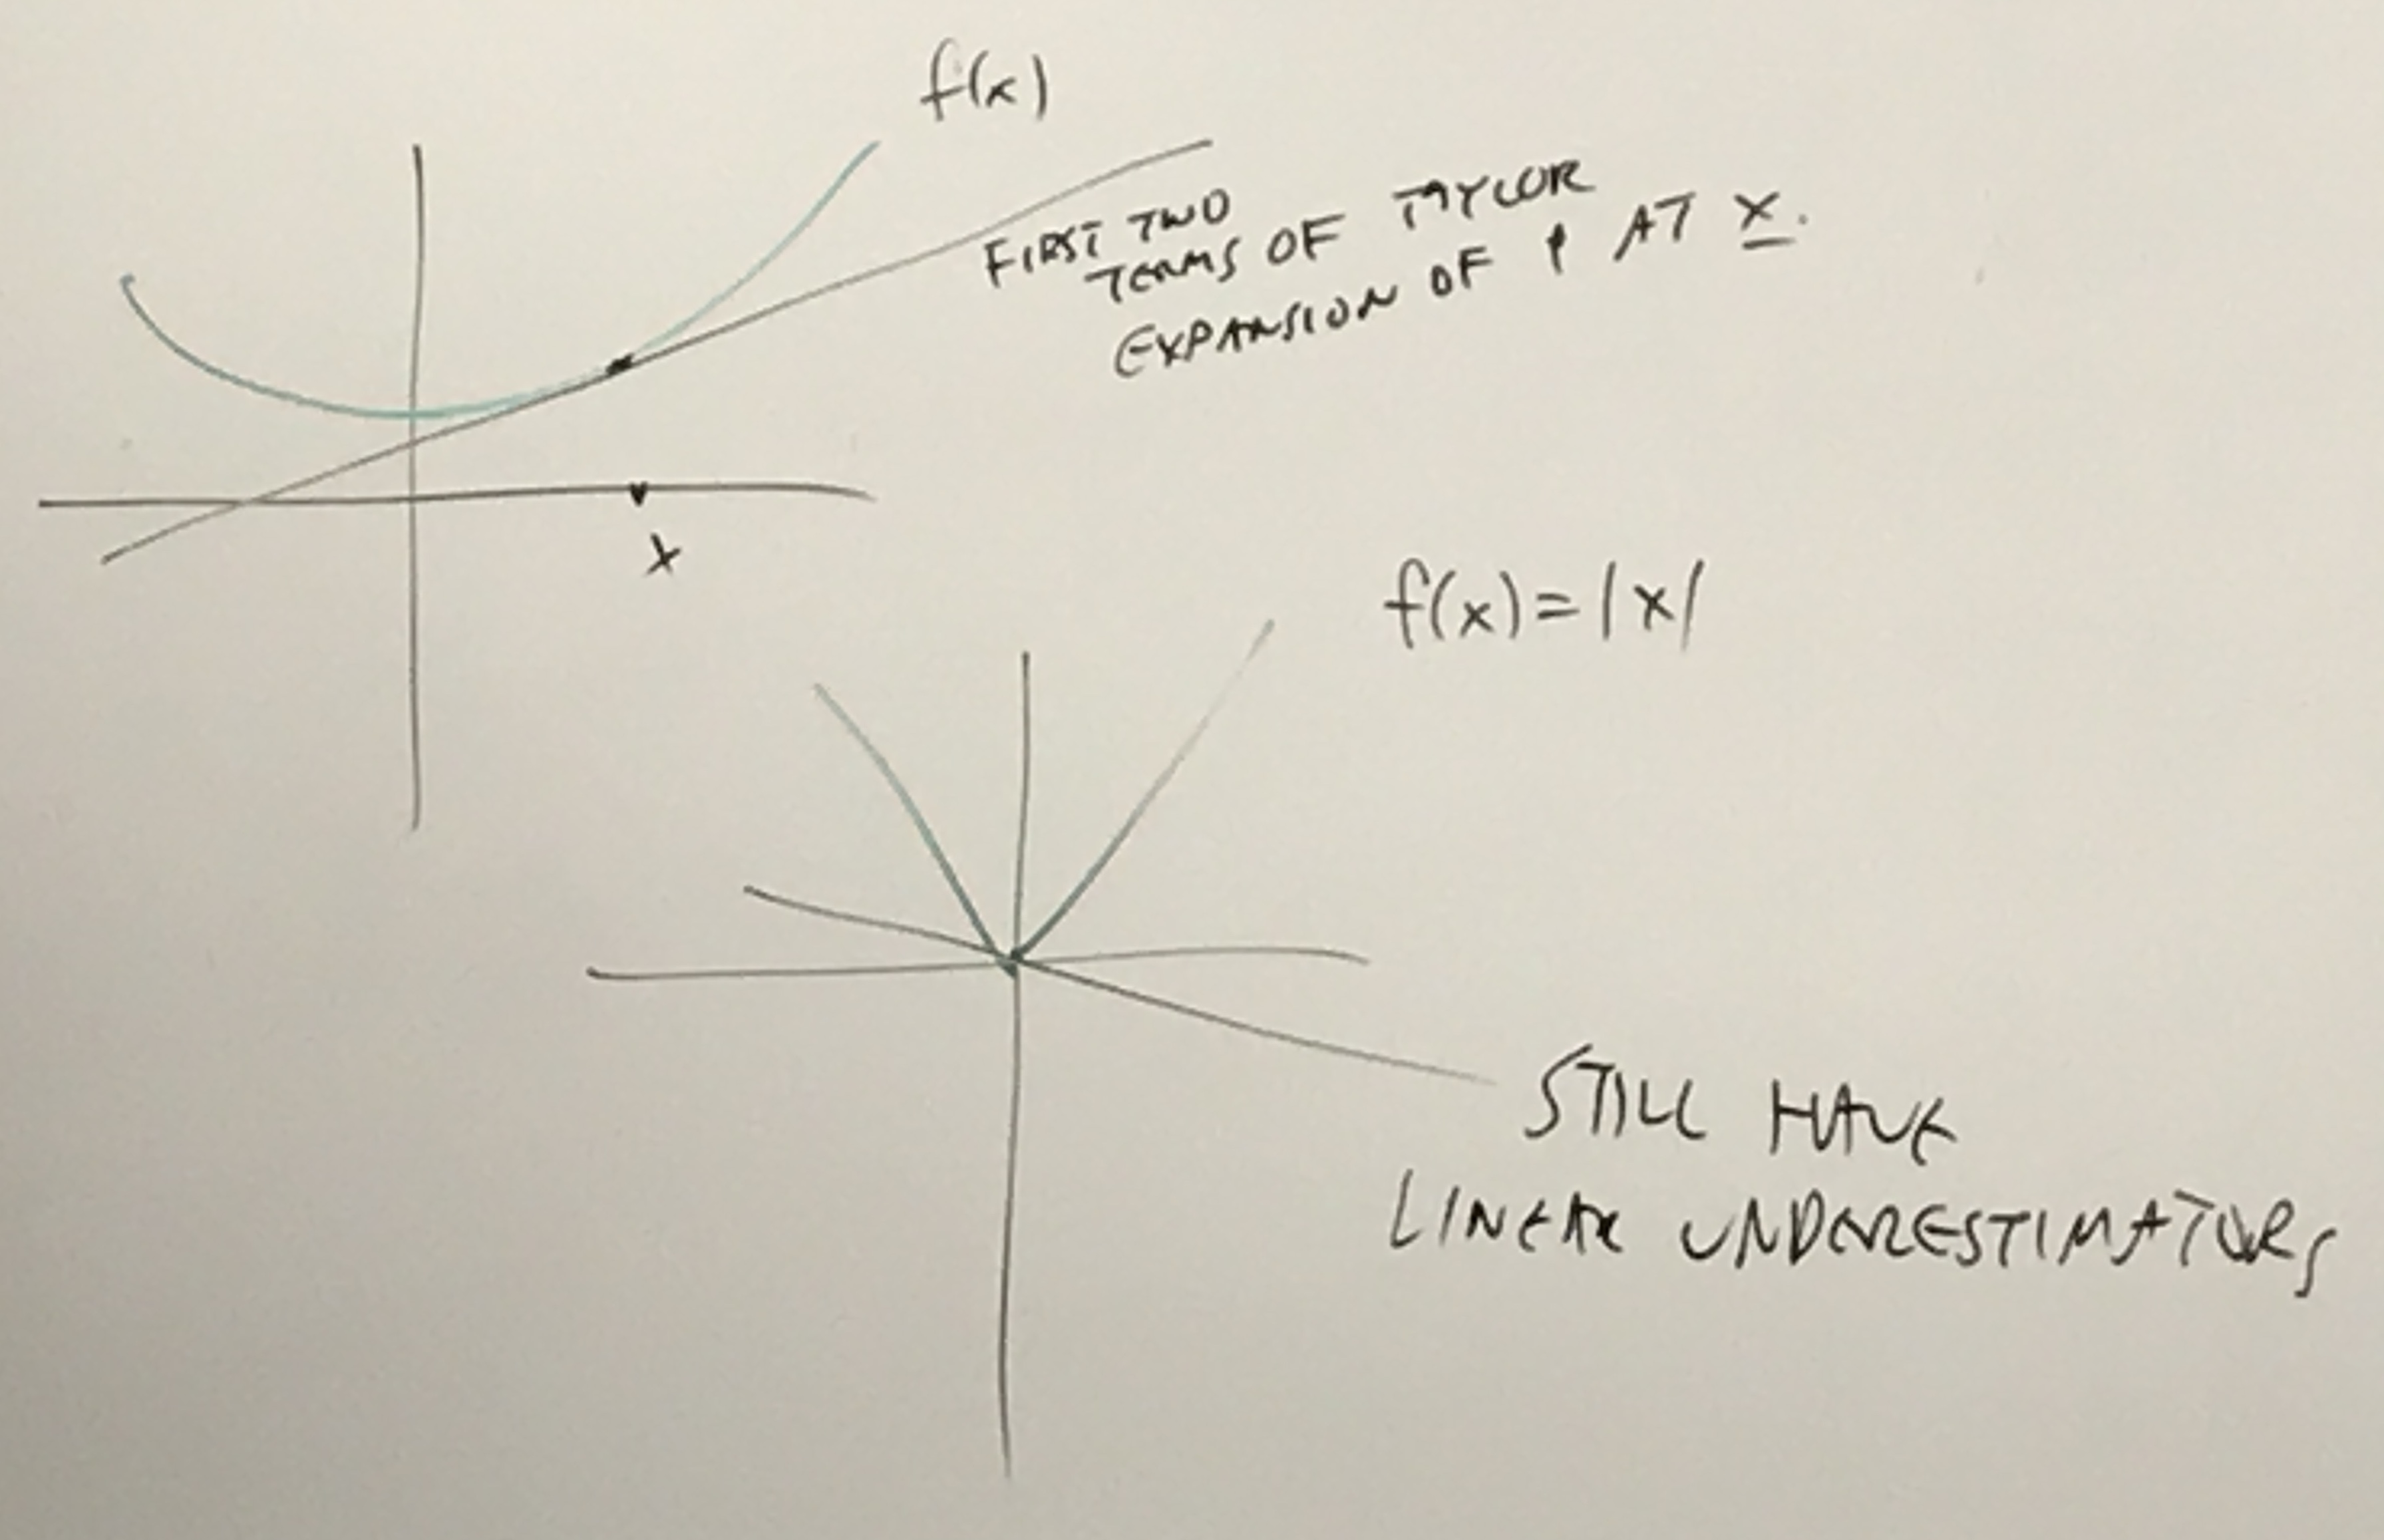 f(x)
FIRST TWO
TERMS OF TAYLOR
EXPANSION OF f AT x.
x
f(x)=|x|
STILL HAVE
LINEAR UNDERESTIMATORS